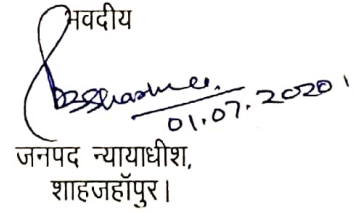 भवदीय
01.07.2020
जनपद न्यायाधीश,
शाहजहाॅपुर।